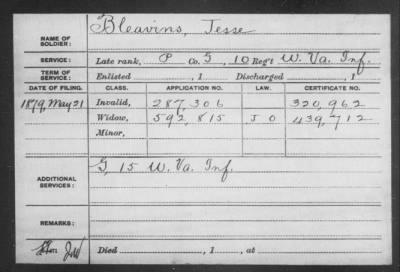 NAME OF SOLDIER: Bleavins, Jesse
SERVICE: Late rank, P Co. G, 10 Reg't W. Va. Inf.
TERM OF SERVICE: Enlisted , 1 Discharged , 1
DATE OF FILING. CLASS. APPLICATION NO. LAW. CERTIFICATE NO.
1879, May 21 Invalid, 287,306 320,962
Widow, 592,815 439,712
Minor,
ADDITIONAL SERVICES: G, 15 W. Va. Inf.
REMARKS:
Died , 1 , at